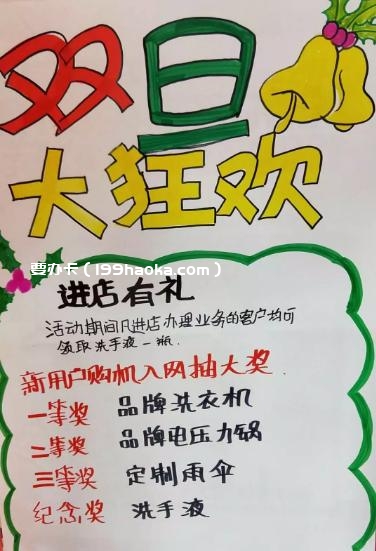 双旦
大狂欢
要办卡（199haoka.com）
进店有礼
活动期间凡进店办理业务的客户均可
领取洗手液一瓶.
新用户购机入网抽大奖.
一等奖 品牌洗衣机
二等奖 品牌电压力锅
三等奖 定制雨伞
纪念奖 洗手液